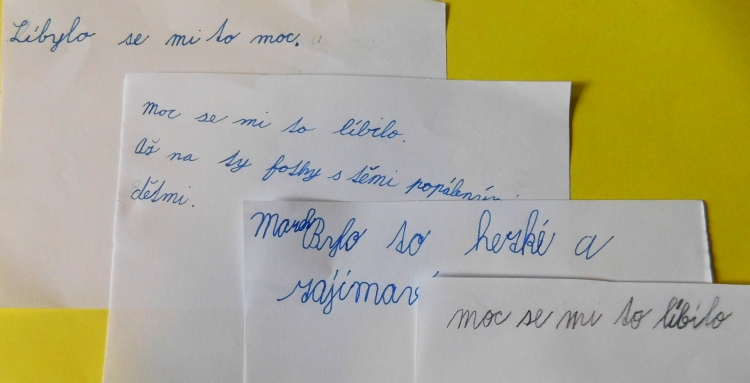 Líbylo se mi to moc.
moc se mi to líbilo.
Až na ty fotky s těmi popálenými
dětmi.
Marek Bylo to heské a
zajímavé
moc se mi to líbilo